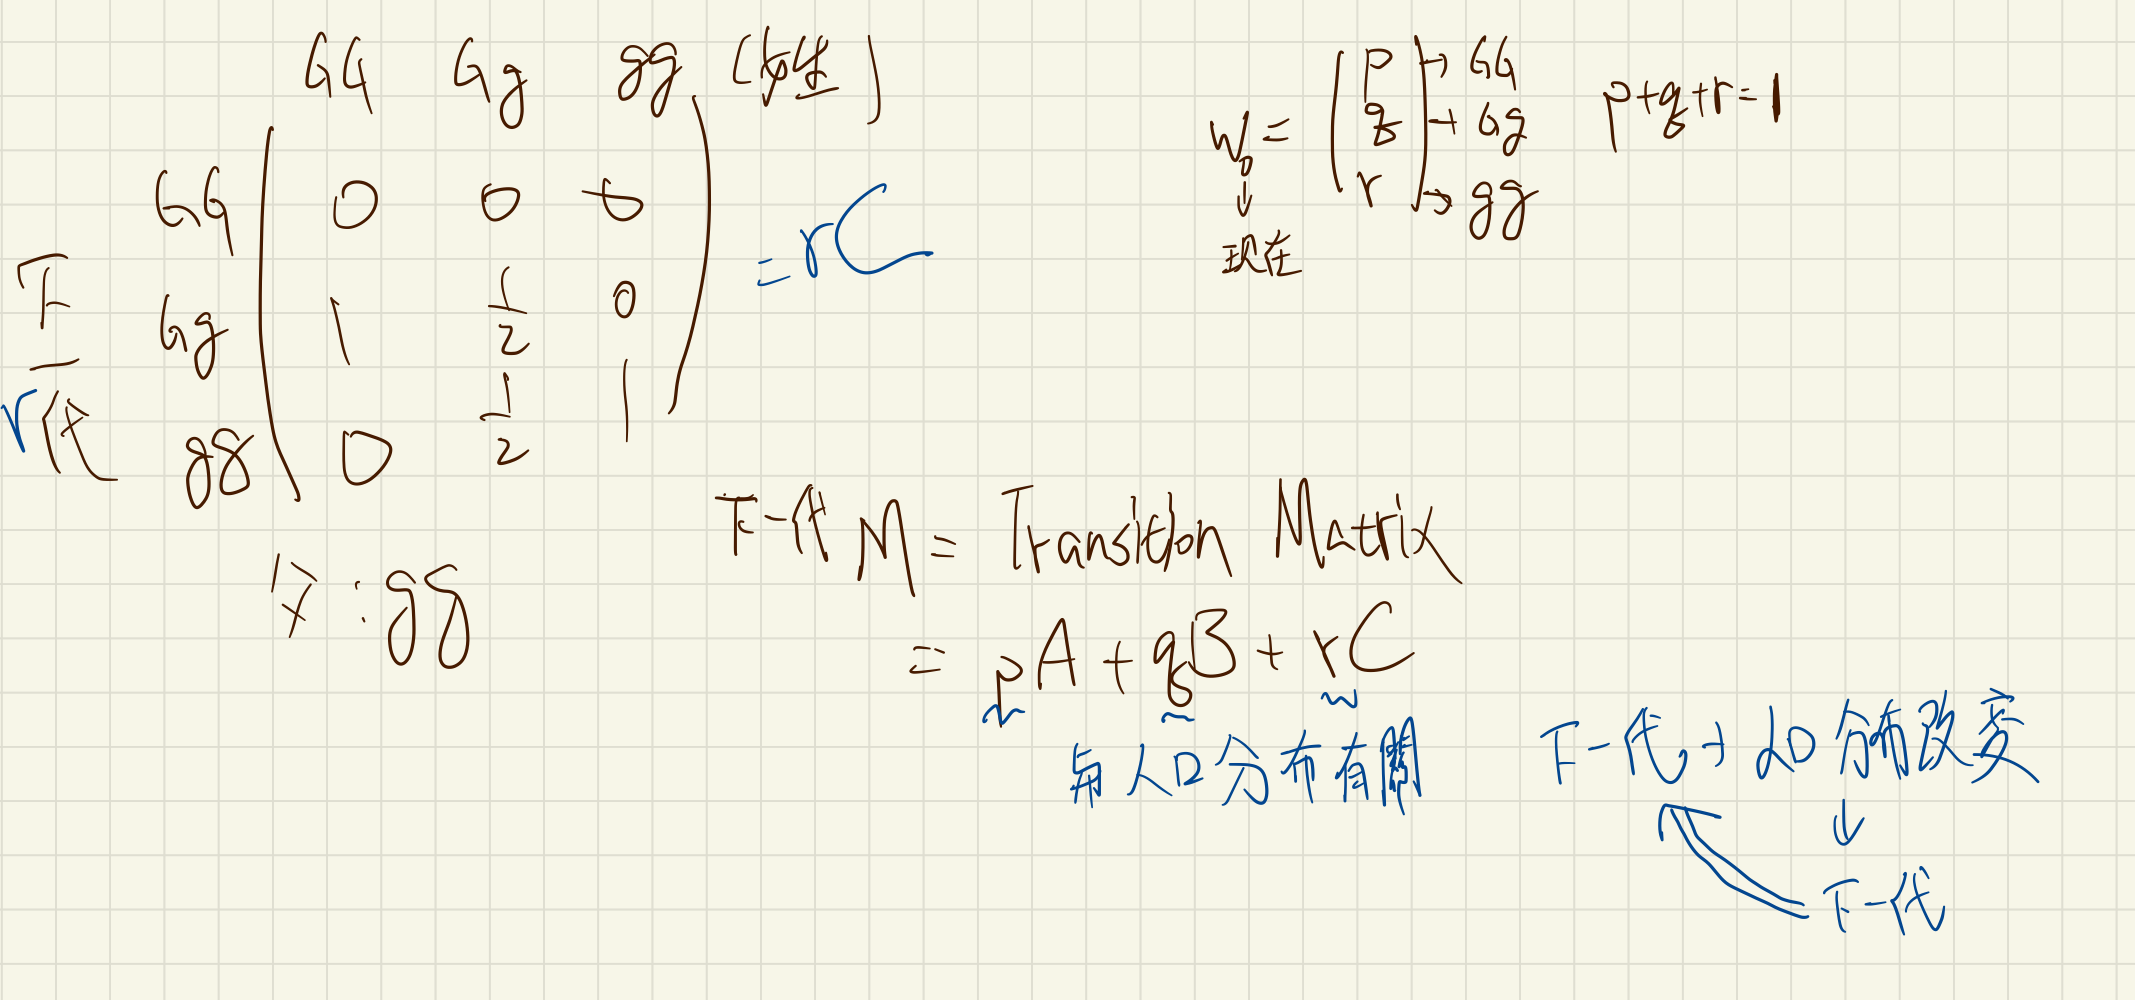 GG Gg gg (女生)
GG 0 0 0
Gg 1 1/2 0
gg 0 1/2 1
= rC
下一代
r
子:gg
W₀ = p → GG
q → Gg
r → gg
p+q+r=1
↓
现在
下一代 M = Transition Matrix
= pA + qB + rC
与人口分布有關
下一代 → 人口分布改变
↓
下一代